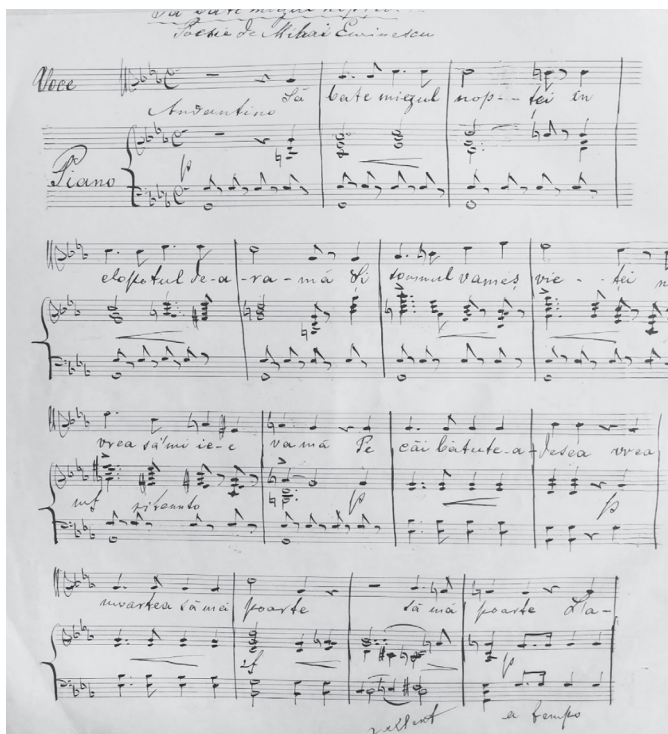 Să bate miezul nopții...
Poesie de Mihai Eminescu
Voce
Andantino
Să bate miezul nop - ței în
Piano
p
clopotul de-a-ra-mă Și somnul vameș vie - ței n
vrea să'mi ie-e va mă Pe căi bătute-a-desea vrea
mf ritenuto p p
moartea să mă poarte să mă poarte L'a-
mf p
rallent a tempo